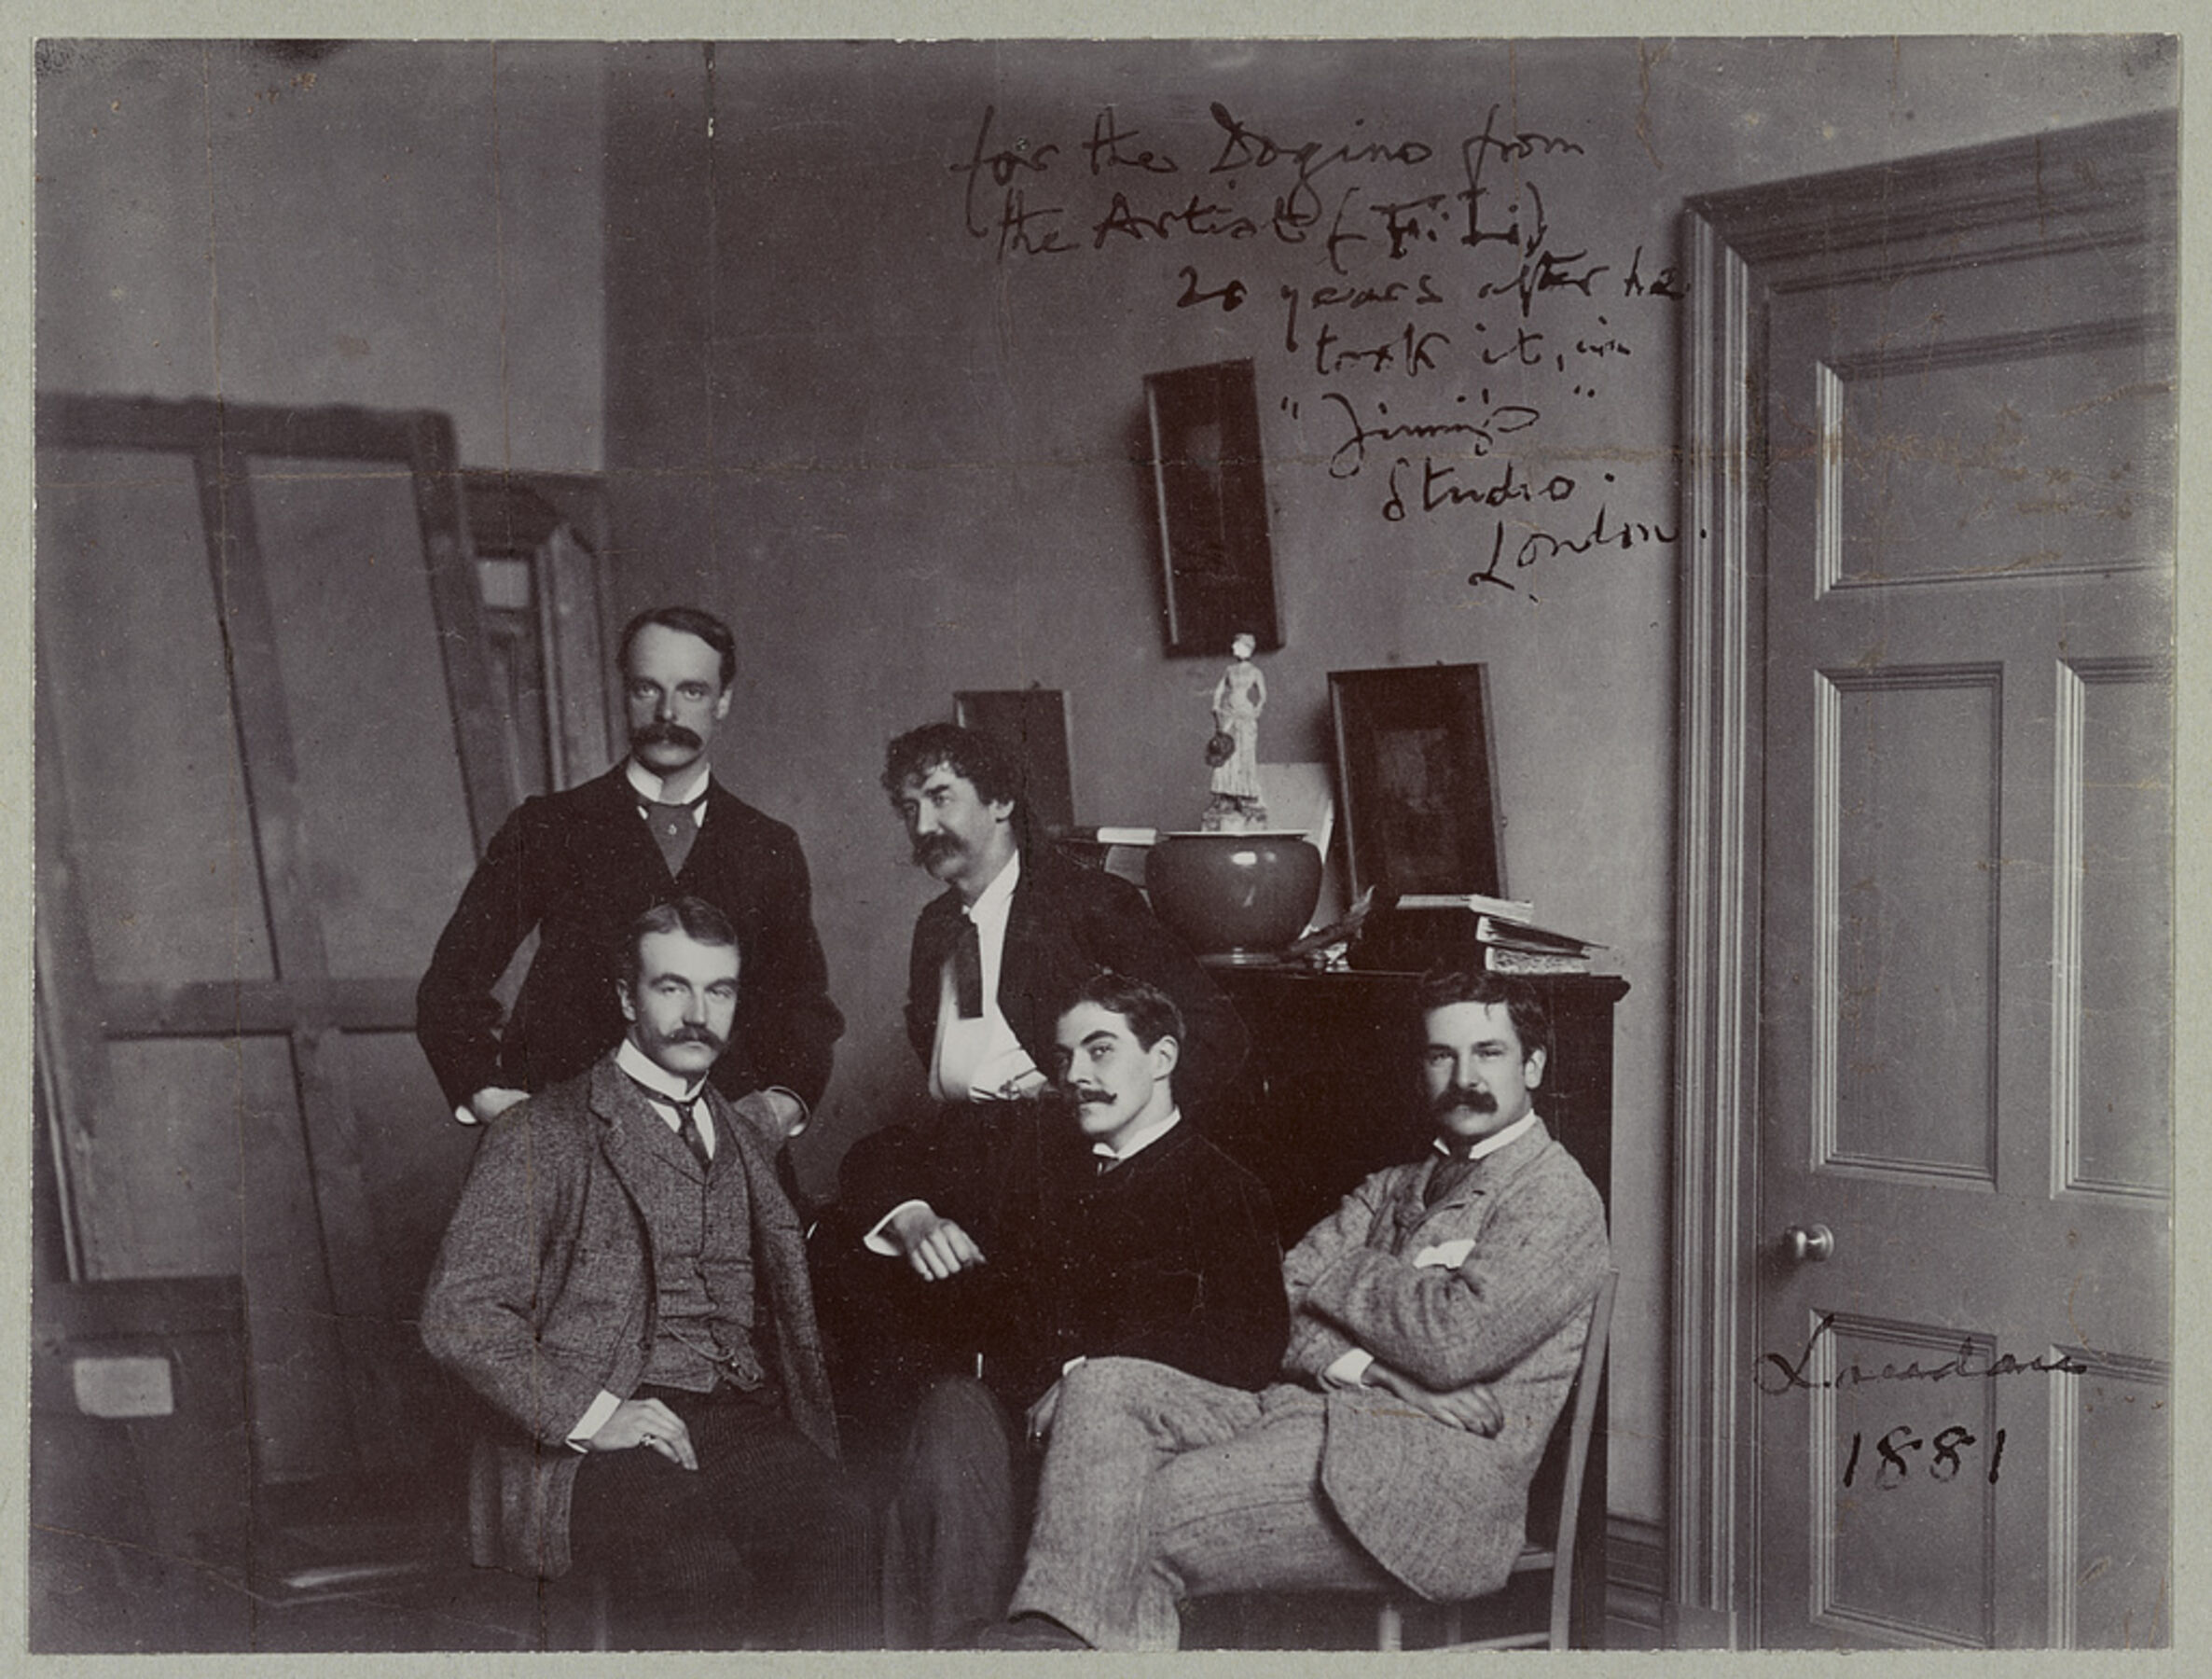 for the Dogino from
the Artist (F. L.)
20 years after he
took it, in
"Jimmy's"
Studio.
London.
London
1881